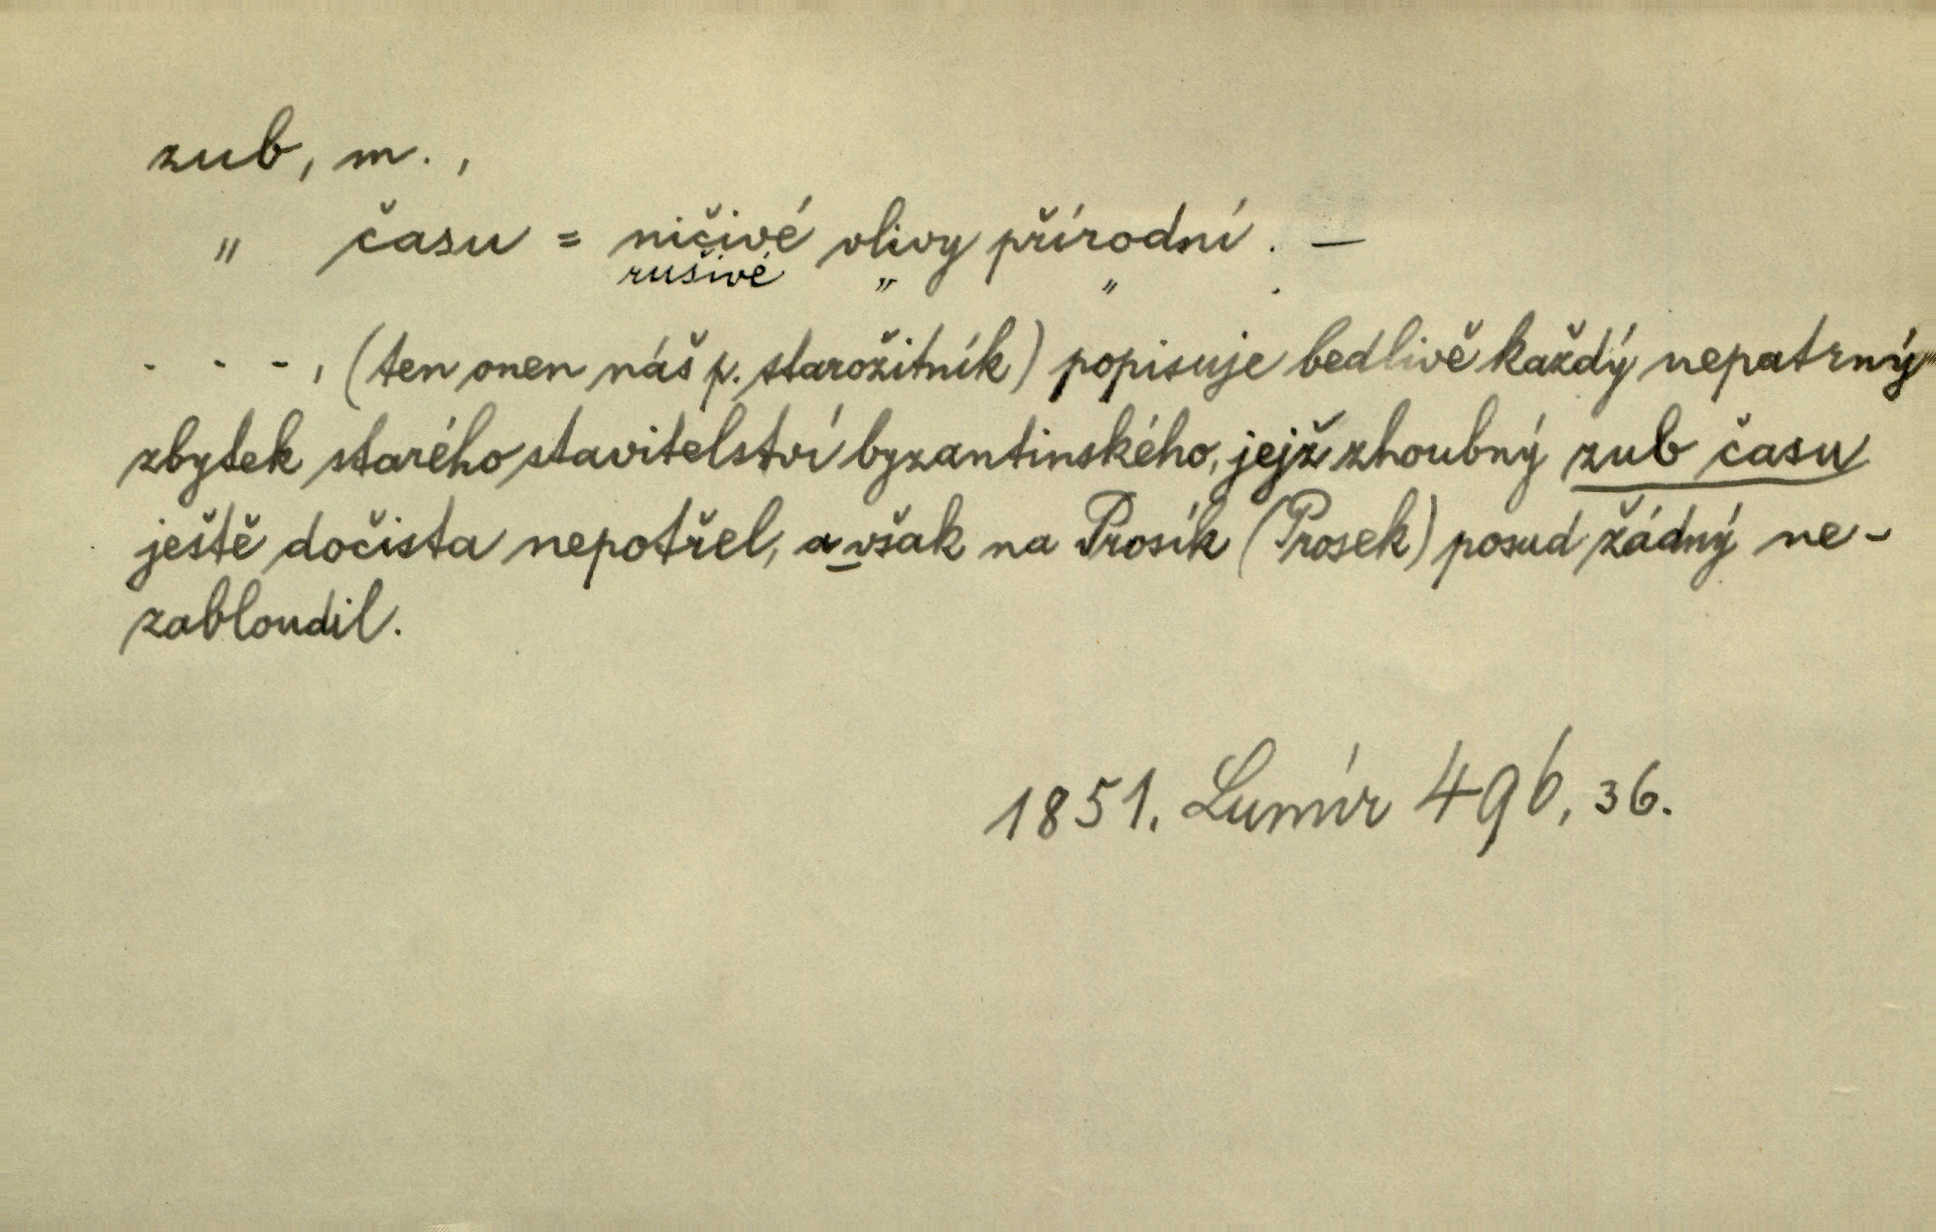 zub, m.,
" času = ničivé vlivy přírodní. —
rušivé " " .
- - -, (ten onen náš p. starožitník) popisuje bedlivě každý nepatrný
zbytek starého stavitelství byzantinského, jejž zhoubný zub času
ještě dočista nepotřel, a však na Prosík (Prosek) posud žádný ne-
zabloudil.
1851. Lumír 496, 36.